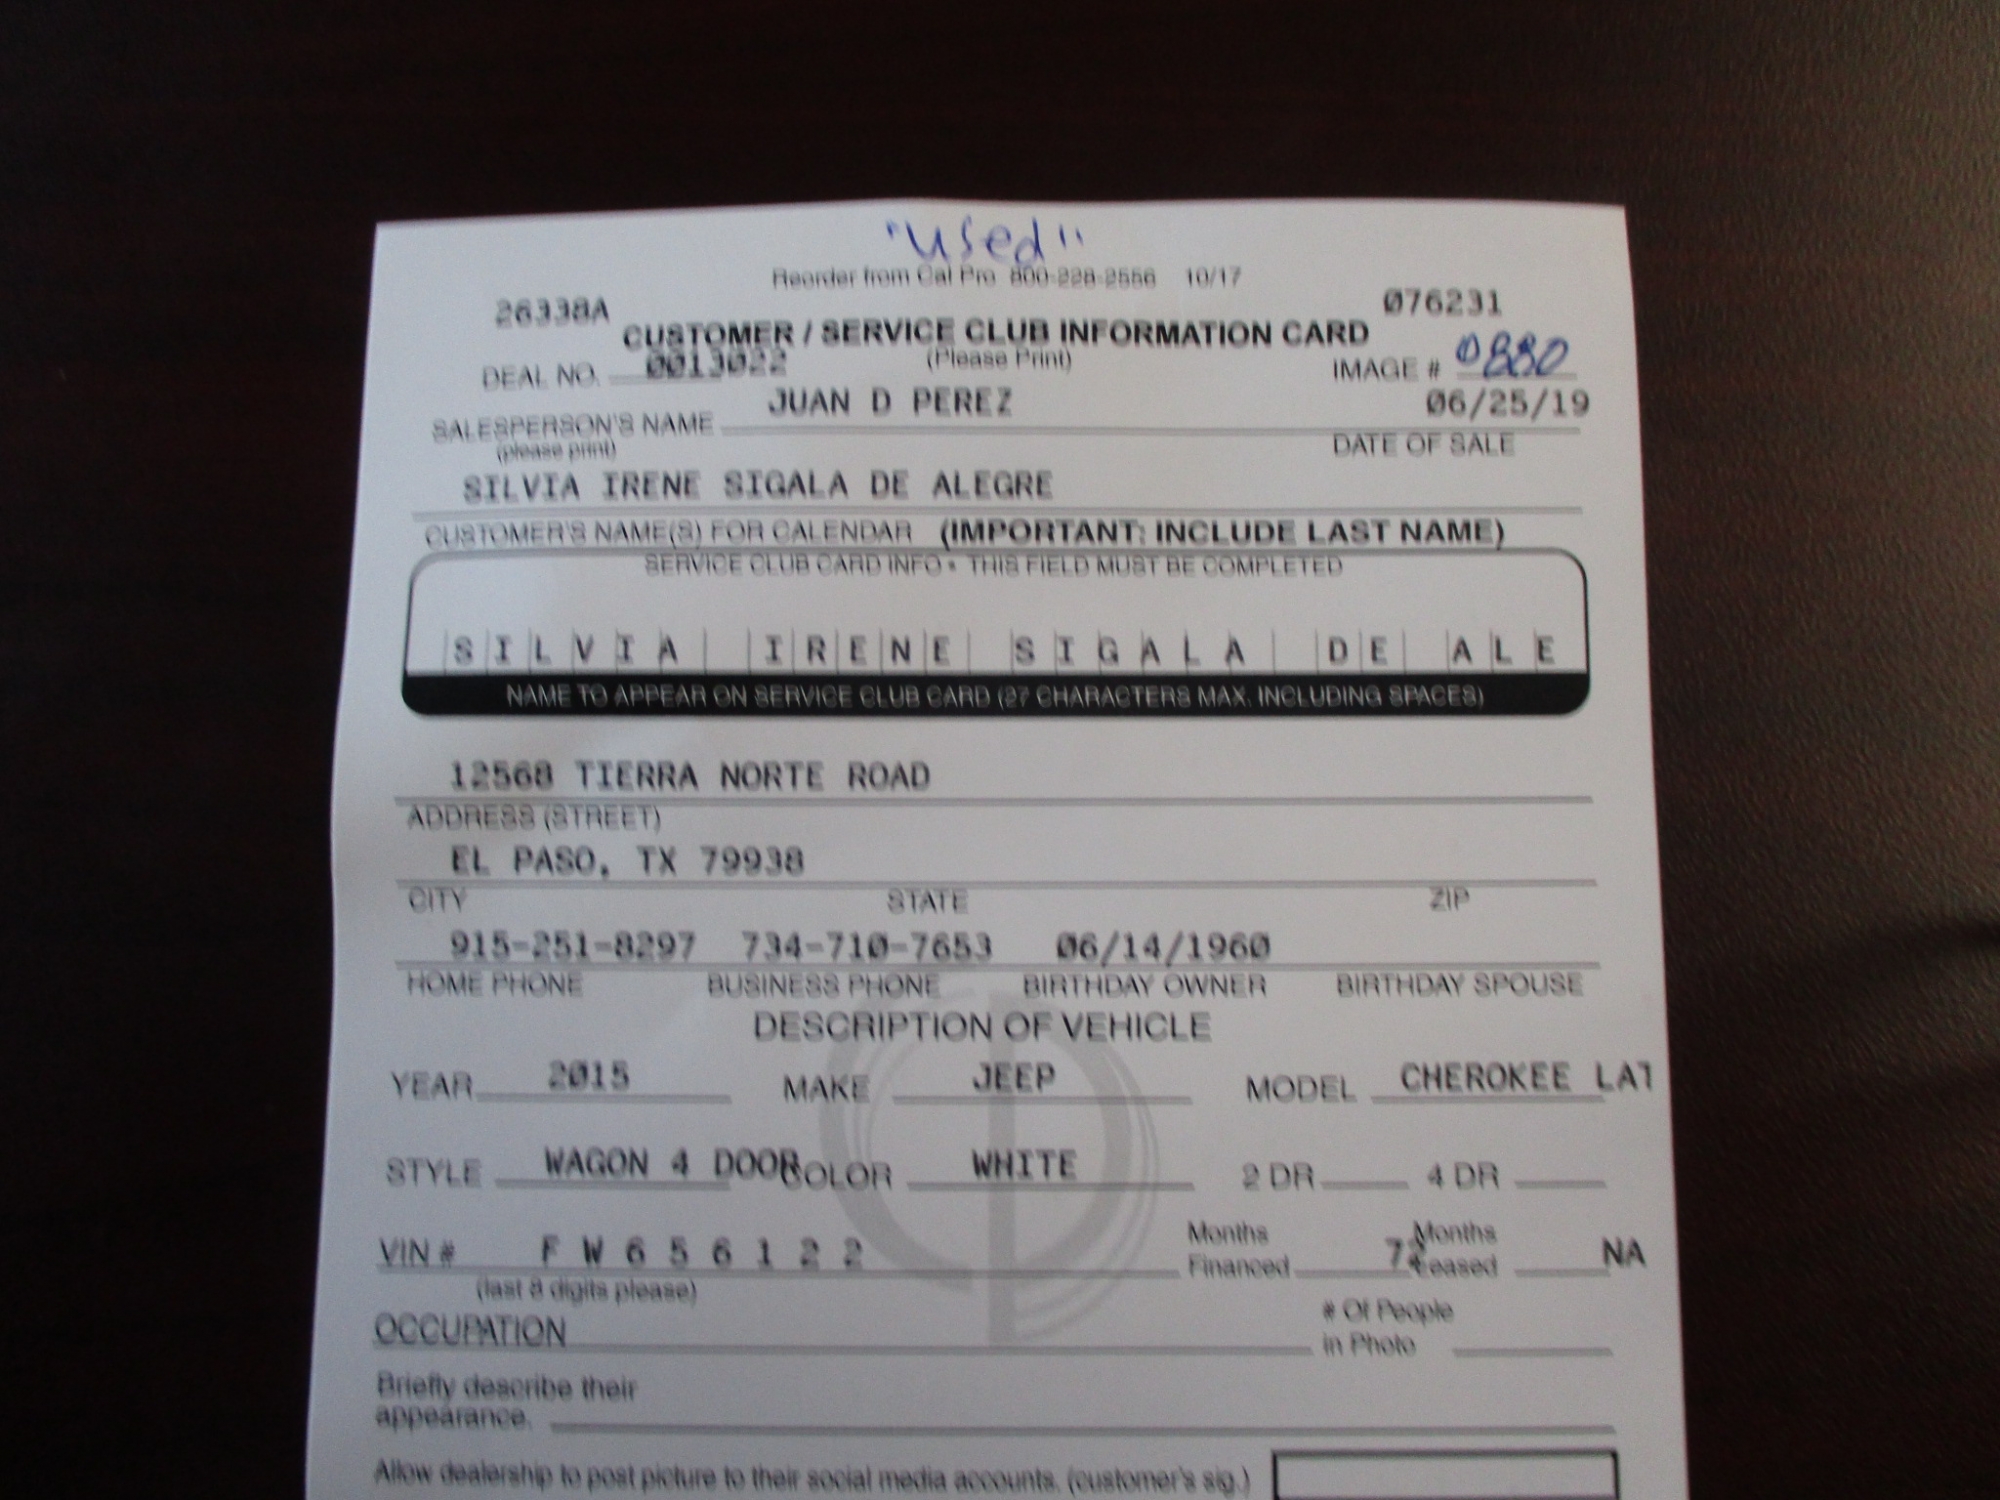 "Used"
Reorder from Cal Pro 800-228-2556 10/17
26338A 076231
CUSTOMER / SERVICE CLUB INFORMATION CARD
DEAL NO. 0013022 (Please Print) IMAGE # 0880
SALESPERSON'S NAME JUAN D PEREZ 06/25/19
(please print) DATE OF SALE
SILVIA IRENE SIGALA DE ALEGRE
CUSTOMER'S NAME(S) FOR CALENDAR (IMPORTANT: INCLUDE LAST NAME)
SERVICE CLUB CARD INFO • THIS FIELD MUST BE COMPLETED
SILVIA IRENE SIGALA DE ALE
NAME TO APPEAR ON SERVICE CLUB CARD (27 CHARACTERS MAX. INCLUDING SPACES)
12568 TIERRA NORTE ROAD
ADDRESS (STREET)
EL PASO, TX 79938
CITY STATE ZIP
915-251-8297 734-710-7653 06/14/1960
HOME PHONE BUSINESS PHONE BIRTHDAY OWNER BIRTHDAY SPOUSE
DESCRIPTION OF VEHICLE
YEAR 2015 MAKE JEEP MODEL CHEROKEE LAT
STYLE WAGON 4 DOOR COLOR WHITE 2 DR 4 DR
VIN # F W 6 5 6 1 2 2 Months Financed 72 Months Leased NA
(last 8 digits please)
OCCUPATION # Of People in Photo
Briefly describe their
appearance.
Allow dealership to post picture to their social media accounts. (customer's sig.)